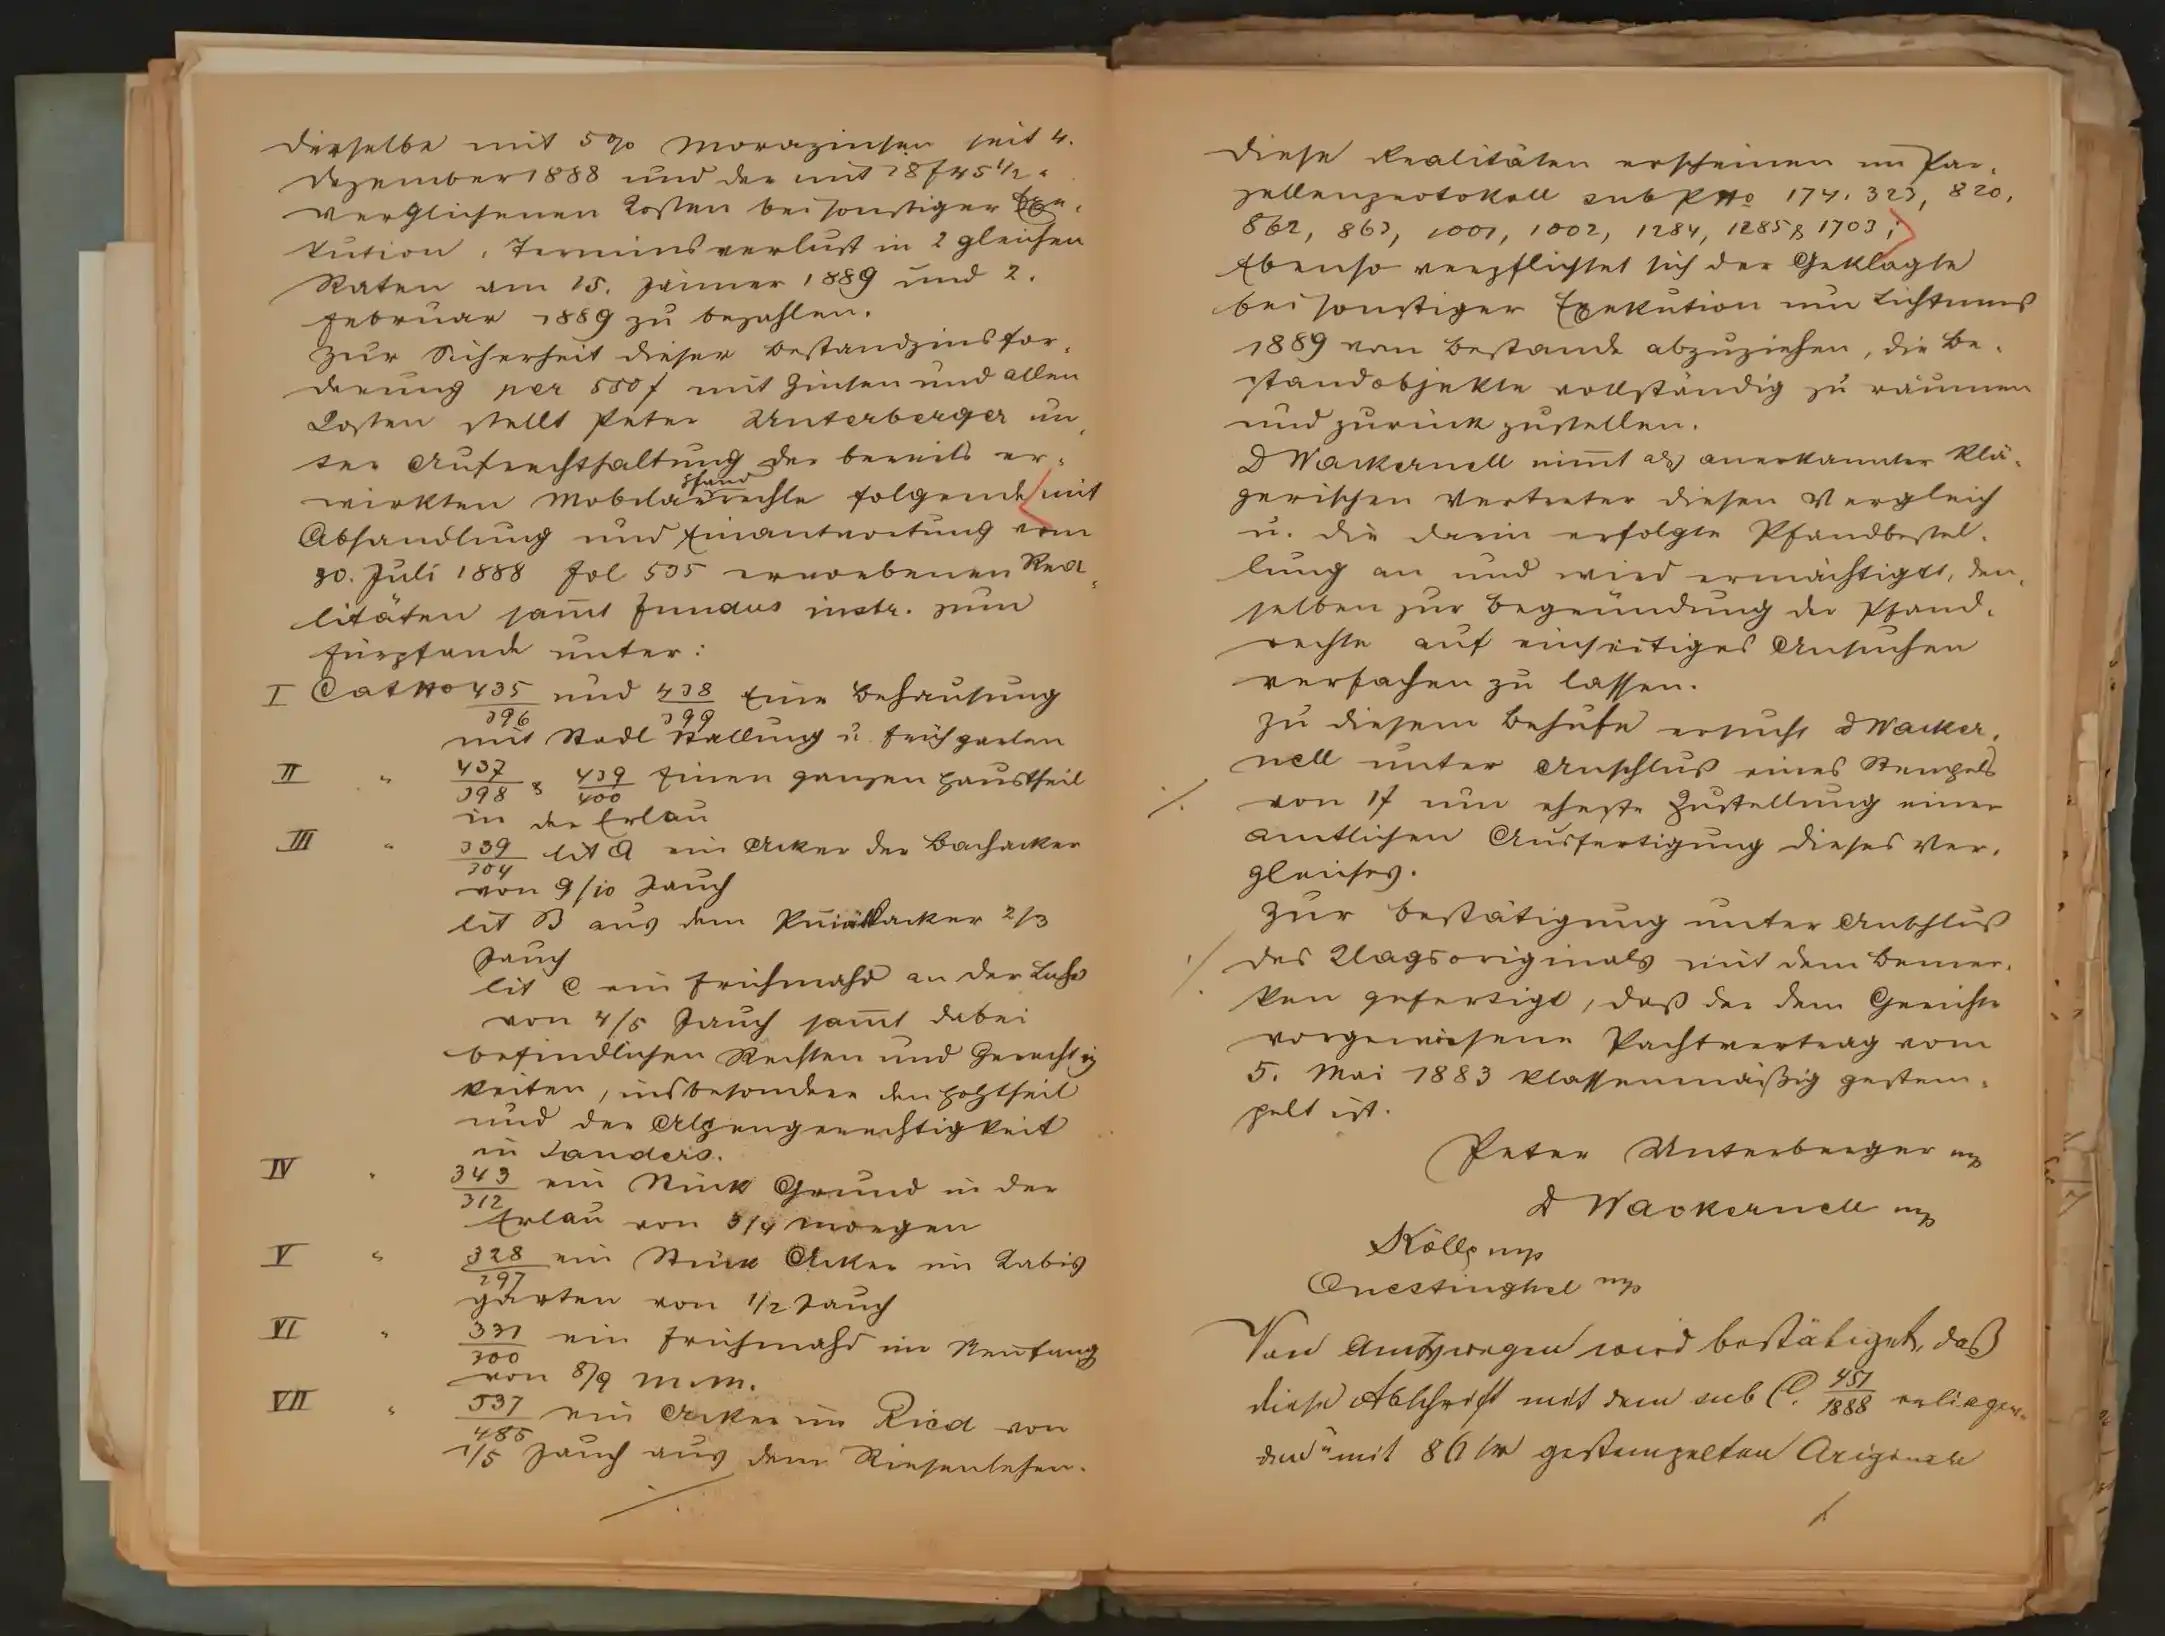 dieselbe mit 5% Morazinsen seit 4.
Dezember 1888 und der mit 28 f 45 1/2 x
verglichenen Kosten bei sonstiger Exe-
kution, Terminsverlust in 2 gleichen
Raten am 15. Jänner 1889 und 2.
Februar 1889 zu bezahlen.
Zur Sicherheit dieser Bestandzinsfor-
derung per 550 f mit Zinsen und allen
Kosten stellt Peter Unterberger un-
ter Aufrechthaltung der bereits er-
wirkten Mobilar pfand rechte folgende mit
Abhandlung und Einantwortung vom
30. Juli 1888 Fol 535 erworbenen Rea-
litäten sam̅t Fundus instr. zum
Fürpfande unter:
I Cat No 435/396 und 438/399 Eine Behausung
mit Stadl Stallung u. Frühgarten
II " 437/398 & 439/400 Einen ganzen Haustheil
in der Erlau
III " 339/304 lit A ein Acker der Bachacker
von 9/10 Jauch
lit B aus dem 2/3
Jauch
lit C ein Frühmahd an der
von 4/5 Jauch sam̅t dabei
befindlichen Rechten und Gerechtig
keiten, insbesondere den Holztheil
und der Alpengerechtigkeit
in Tanders.
IV " 343/312 ein Stück Grund in der
Erlau von 3/4 Morgen
V " 328/297 ein Stück Acker im Kabis
garten von 1/2 Jauch
VI " 331/300 ein Frühmahd im Neufang
von 8/9 M.m.
VII " 537/485 ein Acker im Ried von
1/5 Jauch aus dem Riesenlehen.
Diese Realitäten erscheinen im Par-
zellenprotokoll sub P No 174, 323, 820,
862, 863, 1001, 1002, 1284, 1285 & 1703;
Ebenso verpflichtet sich der Geklagte
bei sonstiger Exekution um Lichtmeß
1889 vom Bestande abzuziehen, die Be-
standobjekte vollständig zu räumen
und zurückzustellen.
D Wackernell nim̅t als anerkannter klä-
gerischen Vertreter diesen Vergleich
u. die darin erfolgte Pfandbestel-
lung an und wird ermächtiget, den-
selben zur Begründung der Pfand-
rechte auf einseitiges Ansuchen
verfachen zu lassen.
Zu diesem Behufe ersucht D Wacker-
nell unter Anschluß eines Stempels
von 1 f um eheste Zustellung einer
amtlichen Ausfertigung dieses Ver-
gleiches.
Zur Bestätigung unter Anschluß
des Klagsoriginals mit dem Bemer-
ken gefertigt, daß der dem Gerichte
vorgewiesene Pachtvertrag vom
5. Mai 1883 klassenmäßig gestem-
pelt ist.
Peter Unterberger mp
D Wackernell mp
Köllg mp
Onestinghel mp
Von Amtswegen wird bestätiget, daß
diese Abschrift mit dem sub C. 451/1888 erliegen-
den mit 86 kr gestempelten Originale